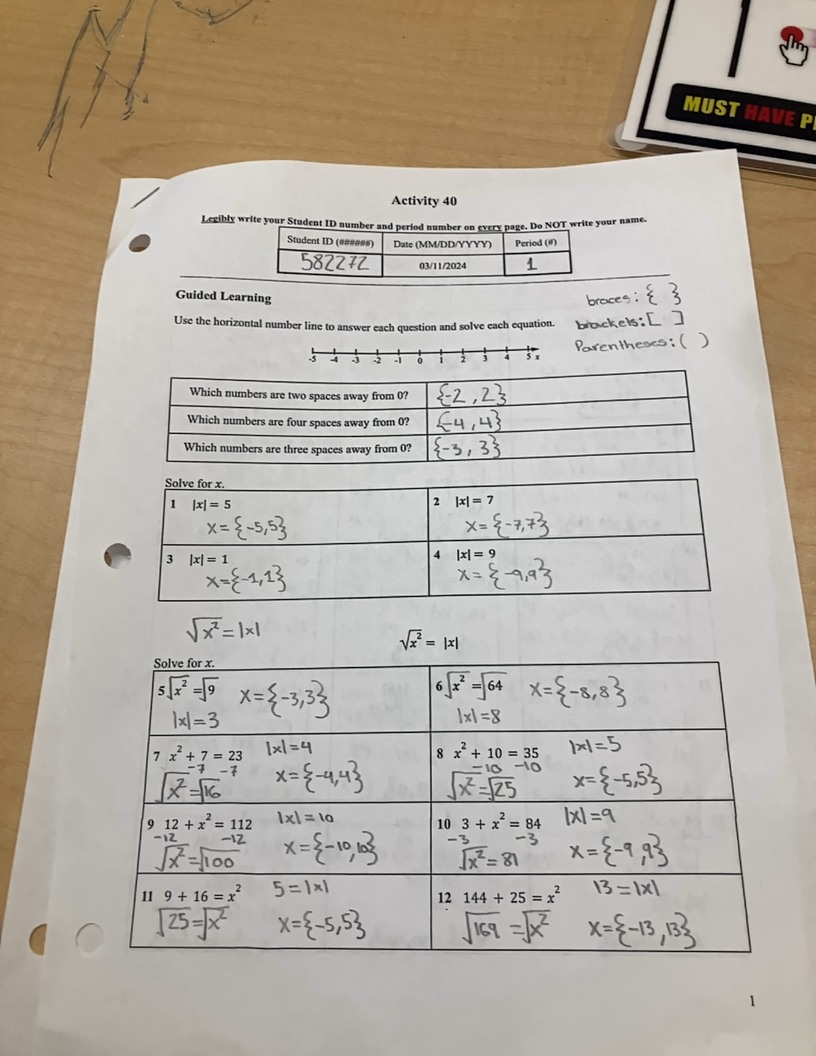 MUST HAVE
Activity 40
Legibly write your Student ID number and period number on every page. Do NOT write your name.
Student ID (######) Date (MM/DD/YYYY) Period (#)
582272 03/11/2024 1
Guided Learning
braces: { }
Use the horizontal number line to answer each question and solve each equation.
brackets: [ ]
Parentheses: ( )
-5 -4 -3 -2 -1 0 1 2 3 4 5 x
Which numbers are two spaces away from 0? {-2, 2}
Which numbers are four spaces away from 0? {-4, 4}
Which numbers are three spaces away from 0? {-3, 3}
Solve for x.
1 |x| = 5
x = {-5,5}
2 |x| = 7
x = {-7,7}
3 |x| = 1
x={-1,1}
4 |x| = 9
x = {-9,9}
√x² = |x|
√x² = |x|
Solve for x.
5 √x² = √9 x={-3,3}
|x|=3
6 √x² = √64 x={-8,8}
|x|=8
7 x² + 7 = 23 |x|=4
-7 -7
√x²=√16 x={-4,4}
8 x² + 10 = 35 |x|=5
-10 -10
√x²=√25 x={-5,5}
9 12 + x² = 112 |x|=10
-12 -12
√x²=√100 x={-10,10}
10 3 + x² = 84 |x|=9
-3 -3
√x²= 81 x={-9,9}
11 9 + 16 = x² 5=|x|
√25=√x² x={-5,5}
12 144 + 25 = x² 13=|x|
√169 =√x² x={-13,13}
1